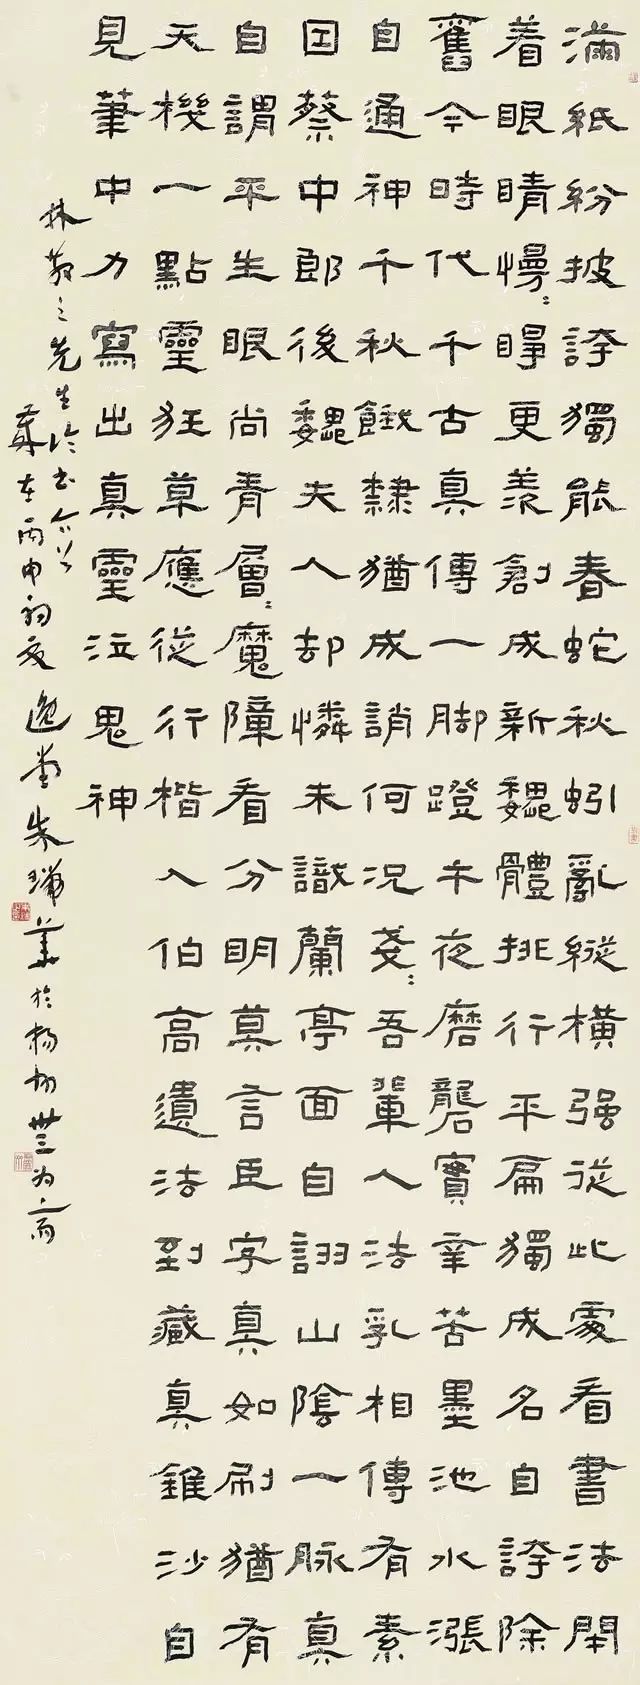 滿紙紛披誇獨能春蛇秋蚓亂縱橫强從此處看書法開
着眼睛慢：睜更羨創成新魏體排行平扁獨成名自誇除
舊今時代千古真傳一脚蹬午夜磨礱實辛苦墨池水漲
自通神千秋餓隸猶成誚何況戔：吾輩人法乳相傳有素
因蔡中郎後魏夫人却憐未識蘭亭面自詡山陰一脉真
自謂平生眼尚青層：魔障看分明莫言臣字真如刷猶有
天機一點靈狂草應從行楷入伯高遺法到藏真錐沙自
見筆中力寫出真靈泣鬼神
林散之先生论书
歲在丙申初夏逸堂朱瑞於楊